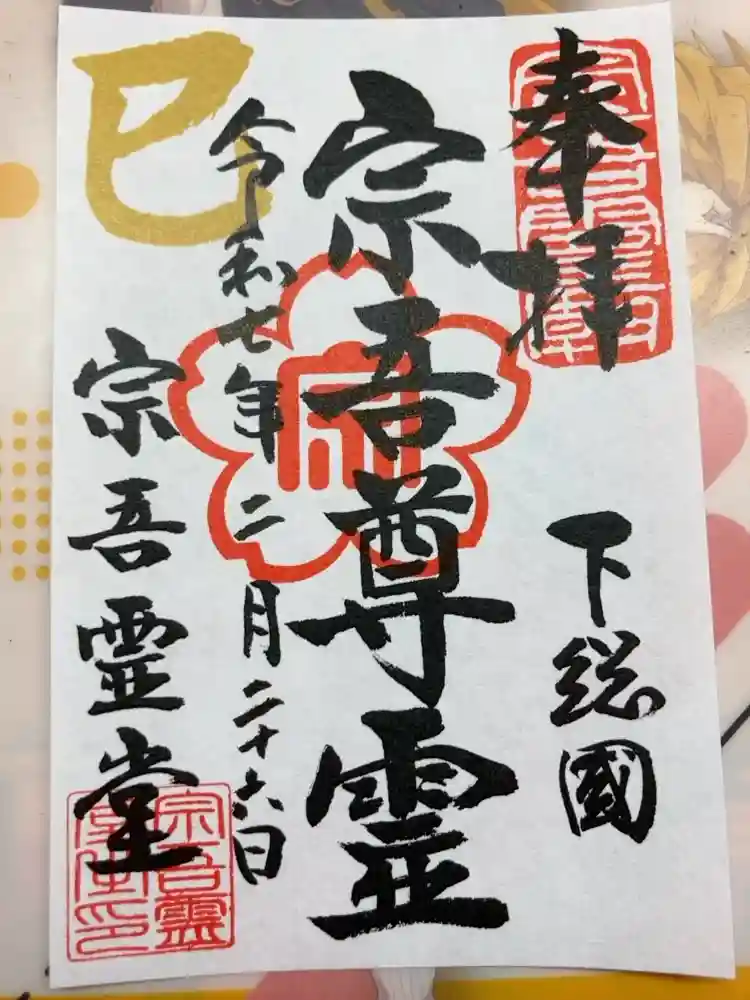 奉拝
下総國
宗吾尊霊
令和七年二月二十六日
宗吾霊堂
巳
宗吾霊